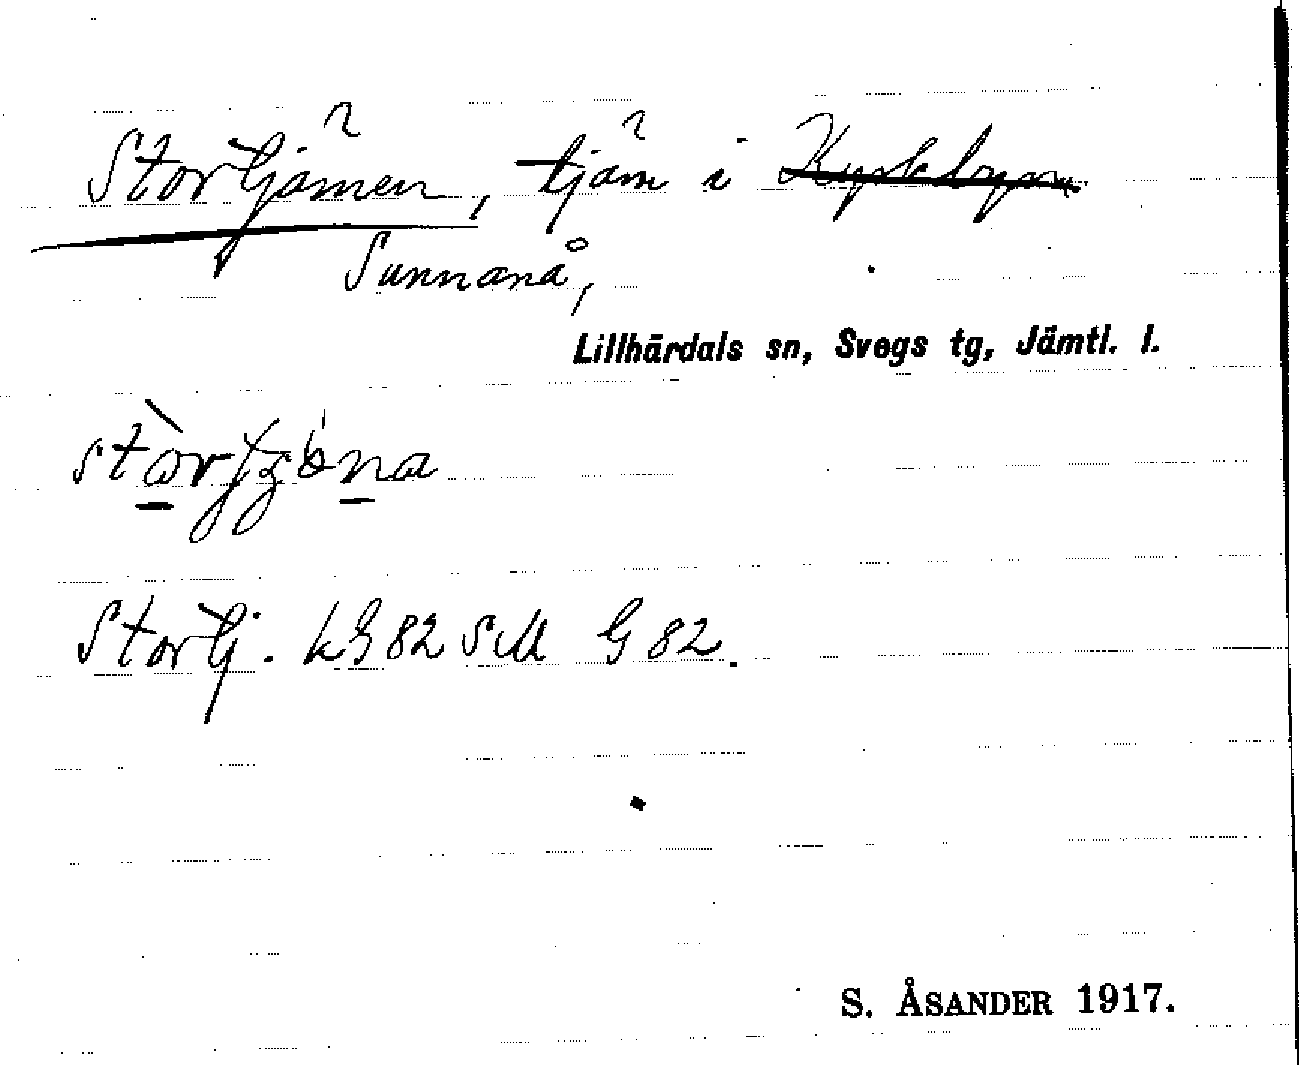 Stortjärnen, tjärn i Kyrkbyn
Sunnanå,
Lillhärdals sn, Svegs tg, Jämtl. l.
Stortj. kG82 SM G82.
S. ÅSANDER 1917.